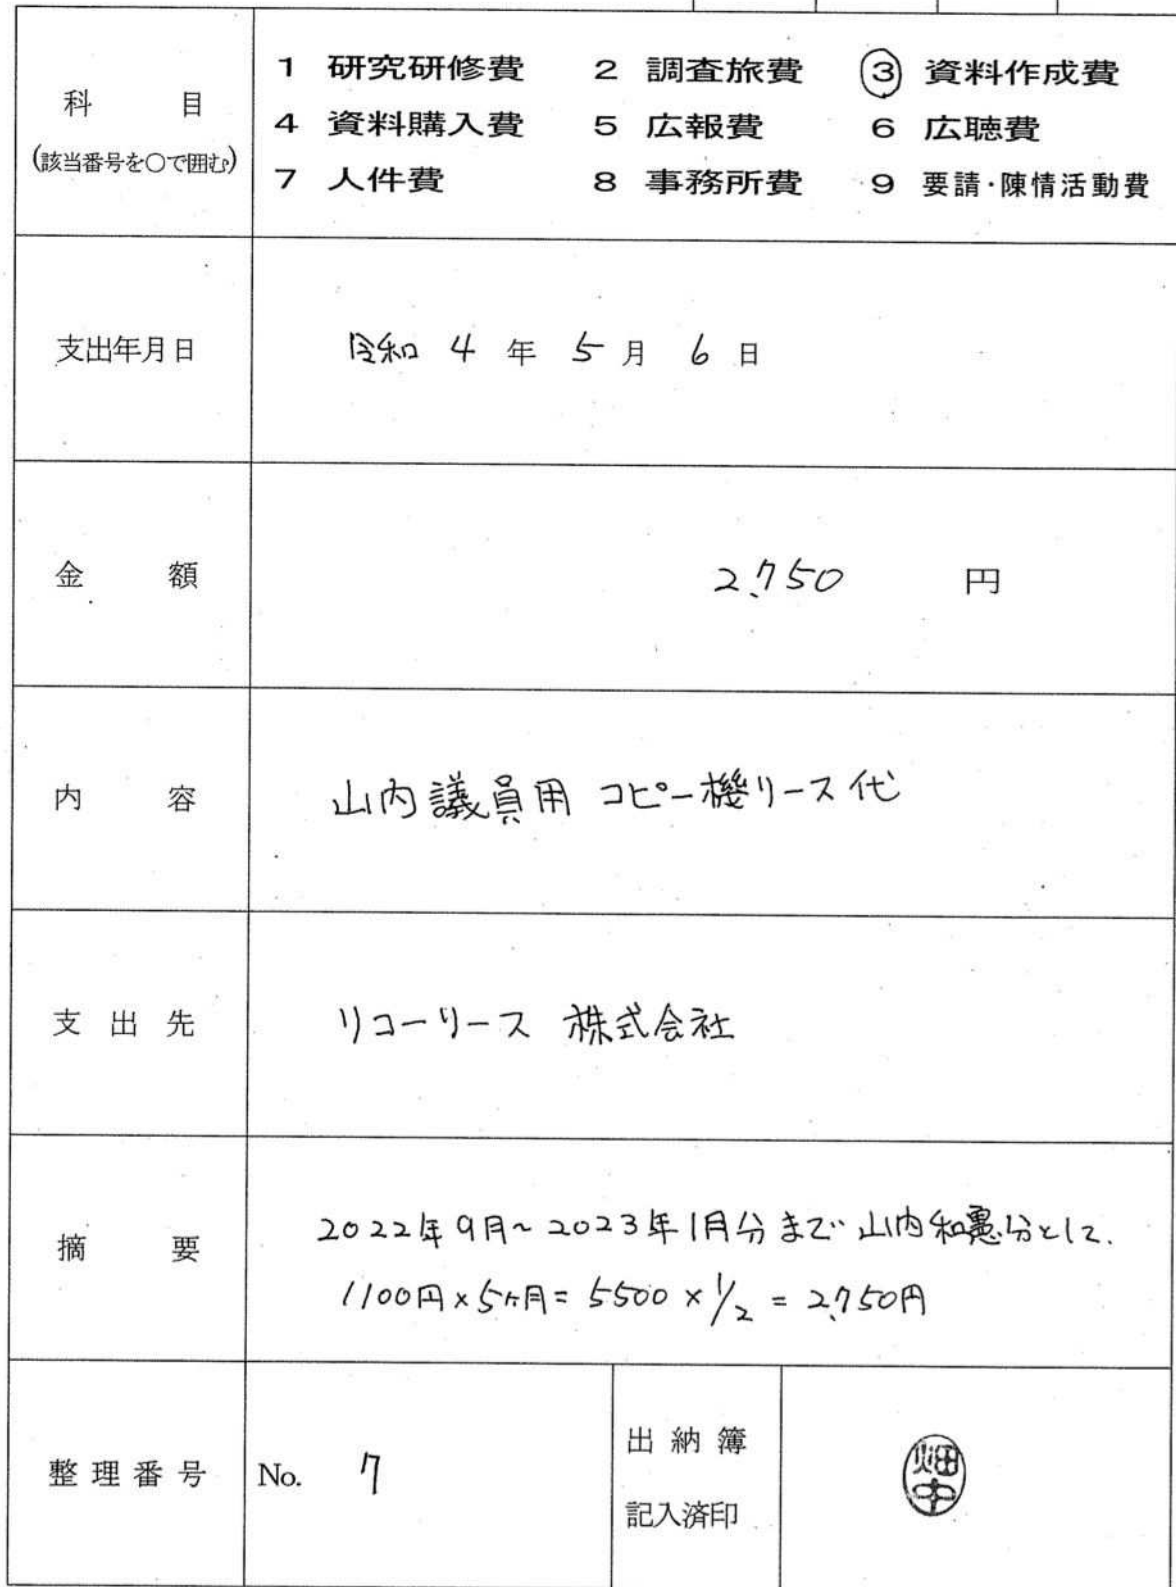 科 目
(該当番号を○で囲む)
1 研究研修費 2 調査旅費 ③ 資料作成費
4 資料購入費 5 広報費 6 広聴費
7 人件費 8 事務所費 9 要請・陳情活動費
支出年月日
令和 4 年 5 月 6 日
金 額
2,750 円
内 容
山内議員用 コピー機リース代
支 出 先
リコーリース 株式会社
摘 要
2022年9月~2023年1月分まで 山内和憲分として.
1100円×5ヶ月= 5500 × 1/2 = 2,750円
整 理 番 号
No. 7
出 納 簿
記入済印
畑中